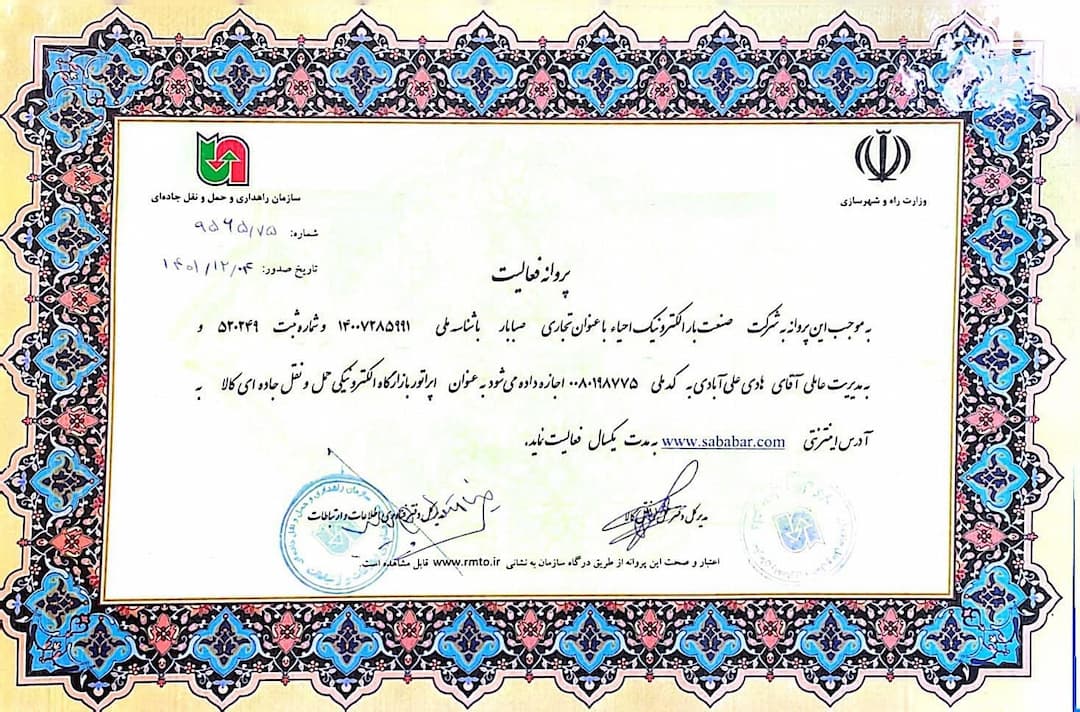 وزارت راه و شهرسازی
سازمان راهداری و حمل و نقل جاده‌ای
شماره: ۹۵۶۵/۷۵
تاریخ صدور: ۱۴۰۱/۱۲/۰۴
پروانه فعالیت
به موجب این پروانه به شرکت صنعت بار الکترونیک احیاء با عنوان تجاری صبابار با شناسه ملی ۱۴۰۰۷۲۸۵۹۹۱ و شماره ثبت ۵۲۰۲۴۹ و
به مدیریت عاملی آقای هادی علی آبادی به کد ملی ۰۰۸۰۱۹۸۷۷۵ اجازه داده می شود به عنوان اپراتور بازارگاه الکترونیکی حمل و نقل جاده ای کالا به
آدرس اینترنتی www.sababar.com به مدت یکسال فعالیت نماید.
مدیر کل دفتر حمل و نقل کالا
مدیر کل دفتر فناوری اطلاعات و ارتباطات
اعتبار و صحت این پروانه از طریق درگاه سازمان به نشانی www.rmto.ir قابل مشاهده است.